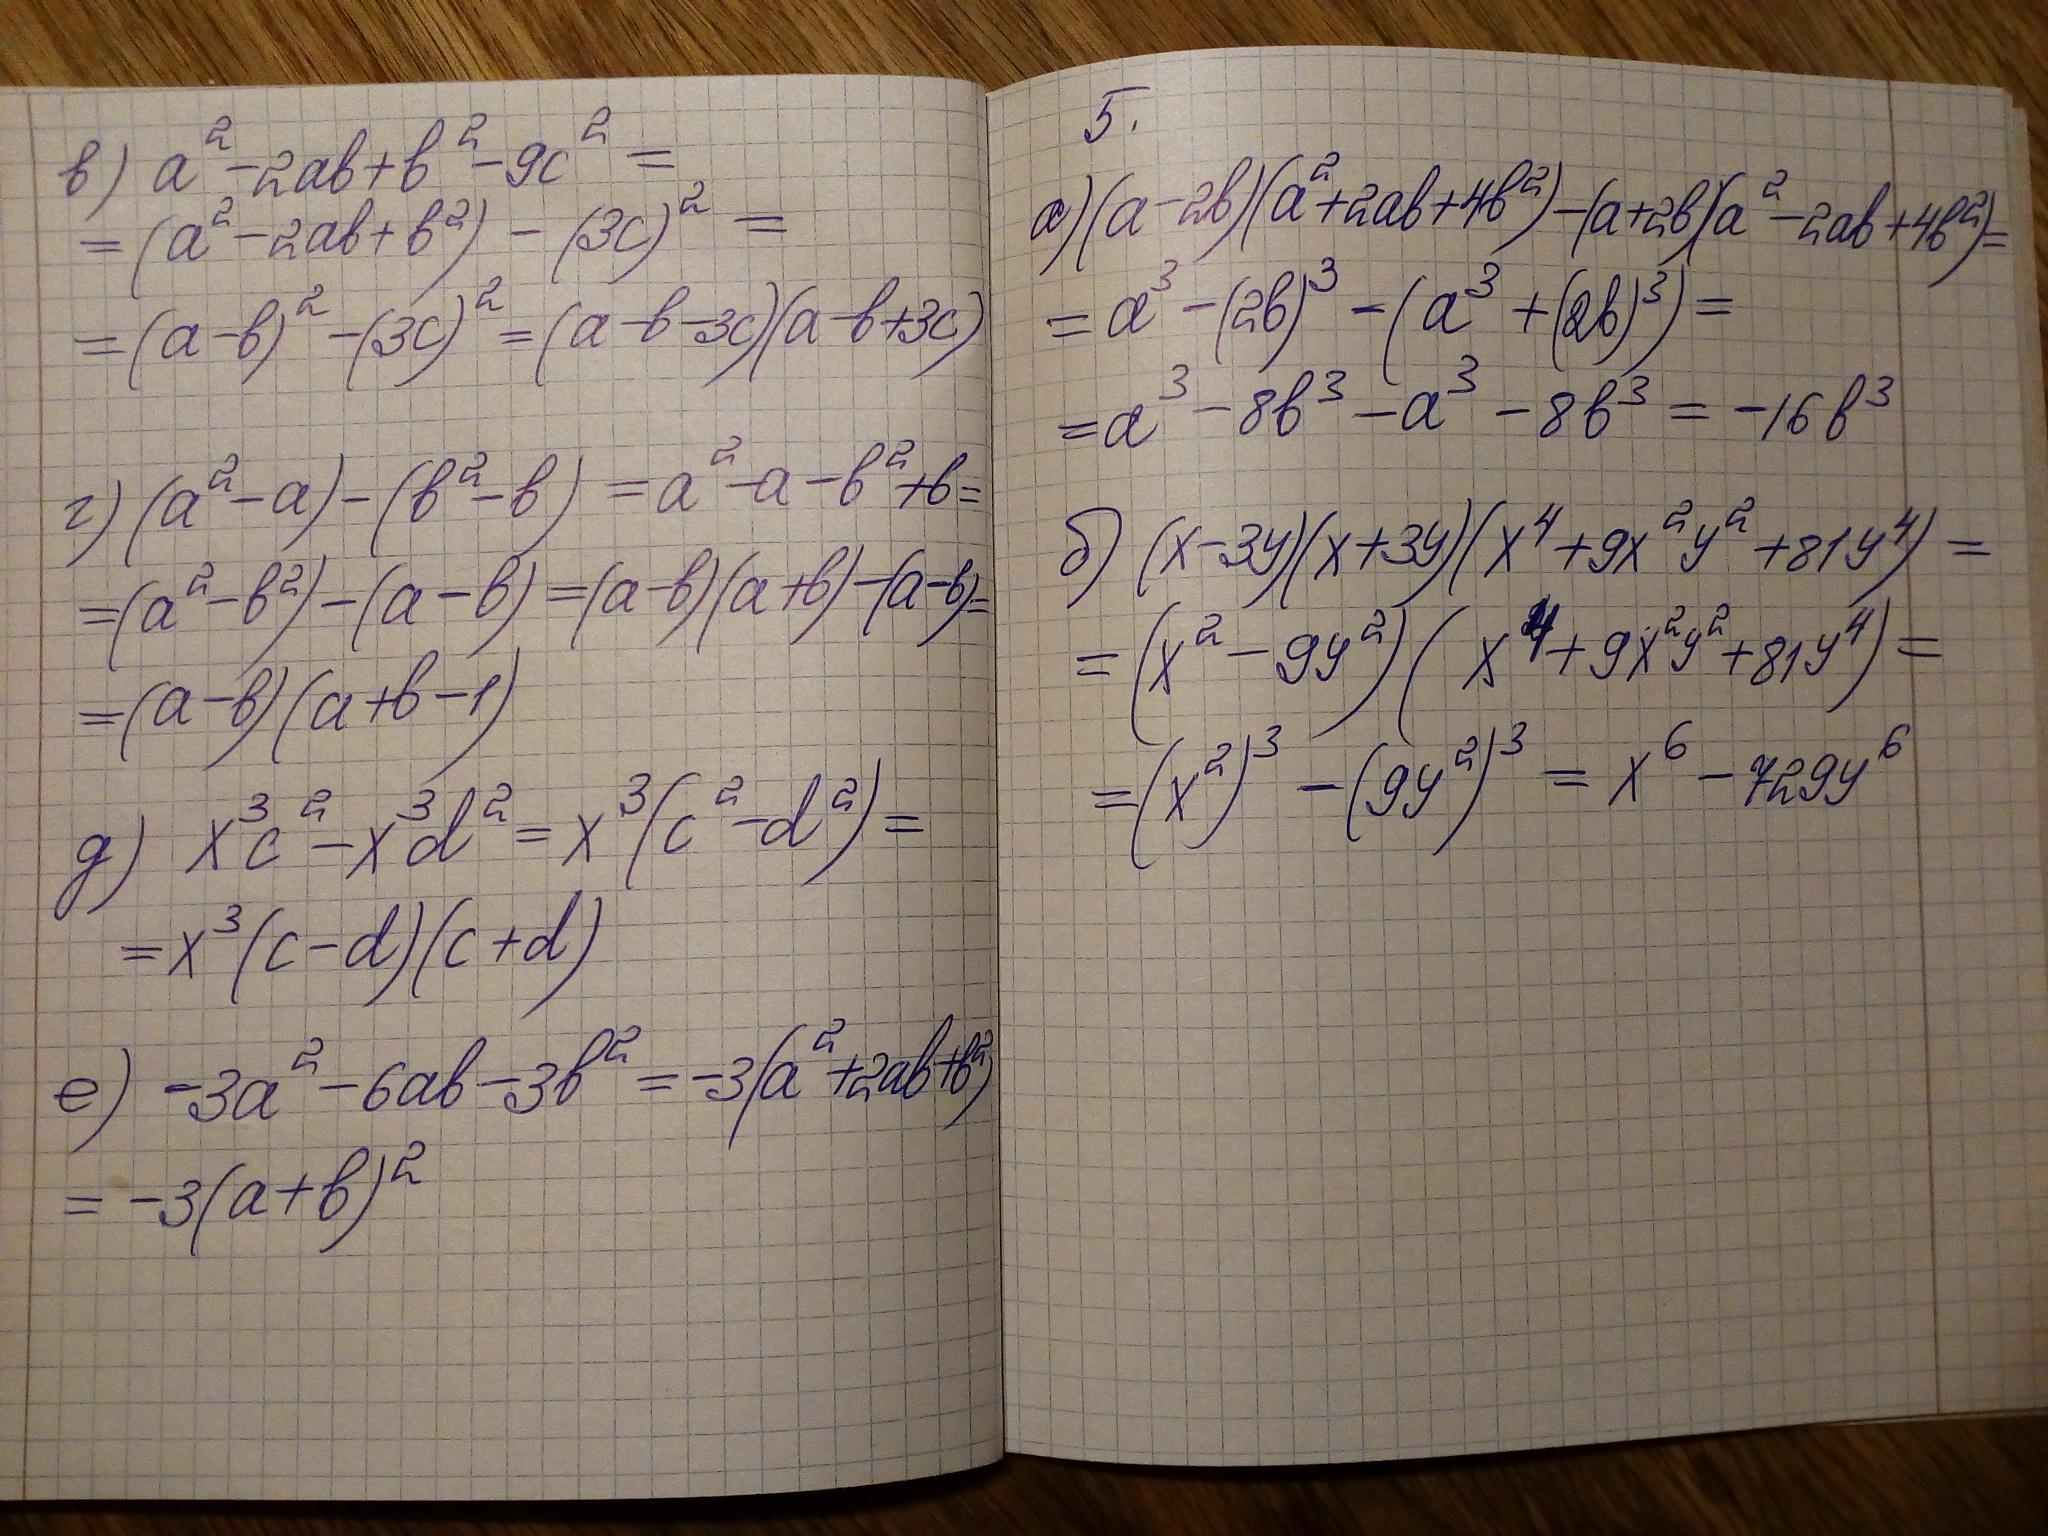 в) a² - 2ab + b² - 9c² =
= (a² - 2ab + b²) - (3c)² =
= (a - b)² - (3c)² = (a - b - 3c)(a - b + 3c)
г) (a² - a) - (b² - b) = a² - a - b² + b =
= (a² - b²) - (a - b) = (a - b)(a + b) - (a - b) =
= (a - b)(a + b - 1)
д) x³c² - x³d² = x³(c² - d²) =
= x³(c - d)(c + d)
е) -3a² - 6ab - 3b² = -3(a² + 2ab + b²)
= -3(a + b)²
5.
а) (a - 2b)(a² + 2ab + 4b²) - (a + 2b)(a² - 2ab + 4b²) =
= a³ - (2b)³ - (a³ + (2b)³) =
= a³ - 8b³ - a³ - 8b³ = -16b³
б) (x - 3y)(x + 3y)(x⁴ + 9x²y² + 81y⁴) =
= (x² - 9y²)(x⁴ + 9x²y² + 81y⁴) =
= (x²)³ - (9y²)³ = x⁶ - 729y⁶